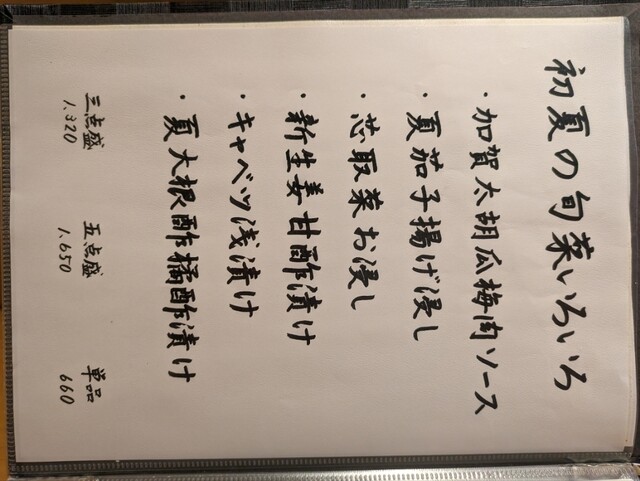 初夏の旬菜いろいろ
・加賀太胡瓜梅肉ソース
・夏茄子揚げ浸し
・芯取菜お浸し
・新生姜甘酢漬け
・キャベツ浅漬け
・夏大根酢橘酢漬け
三点盛 1.320
五点盛 1.650
単品 660